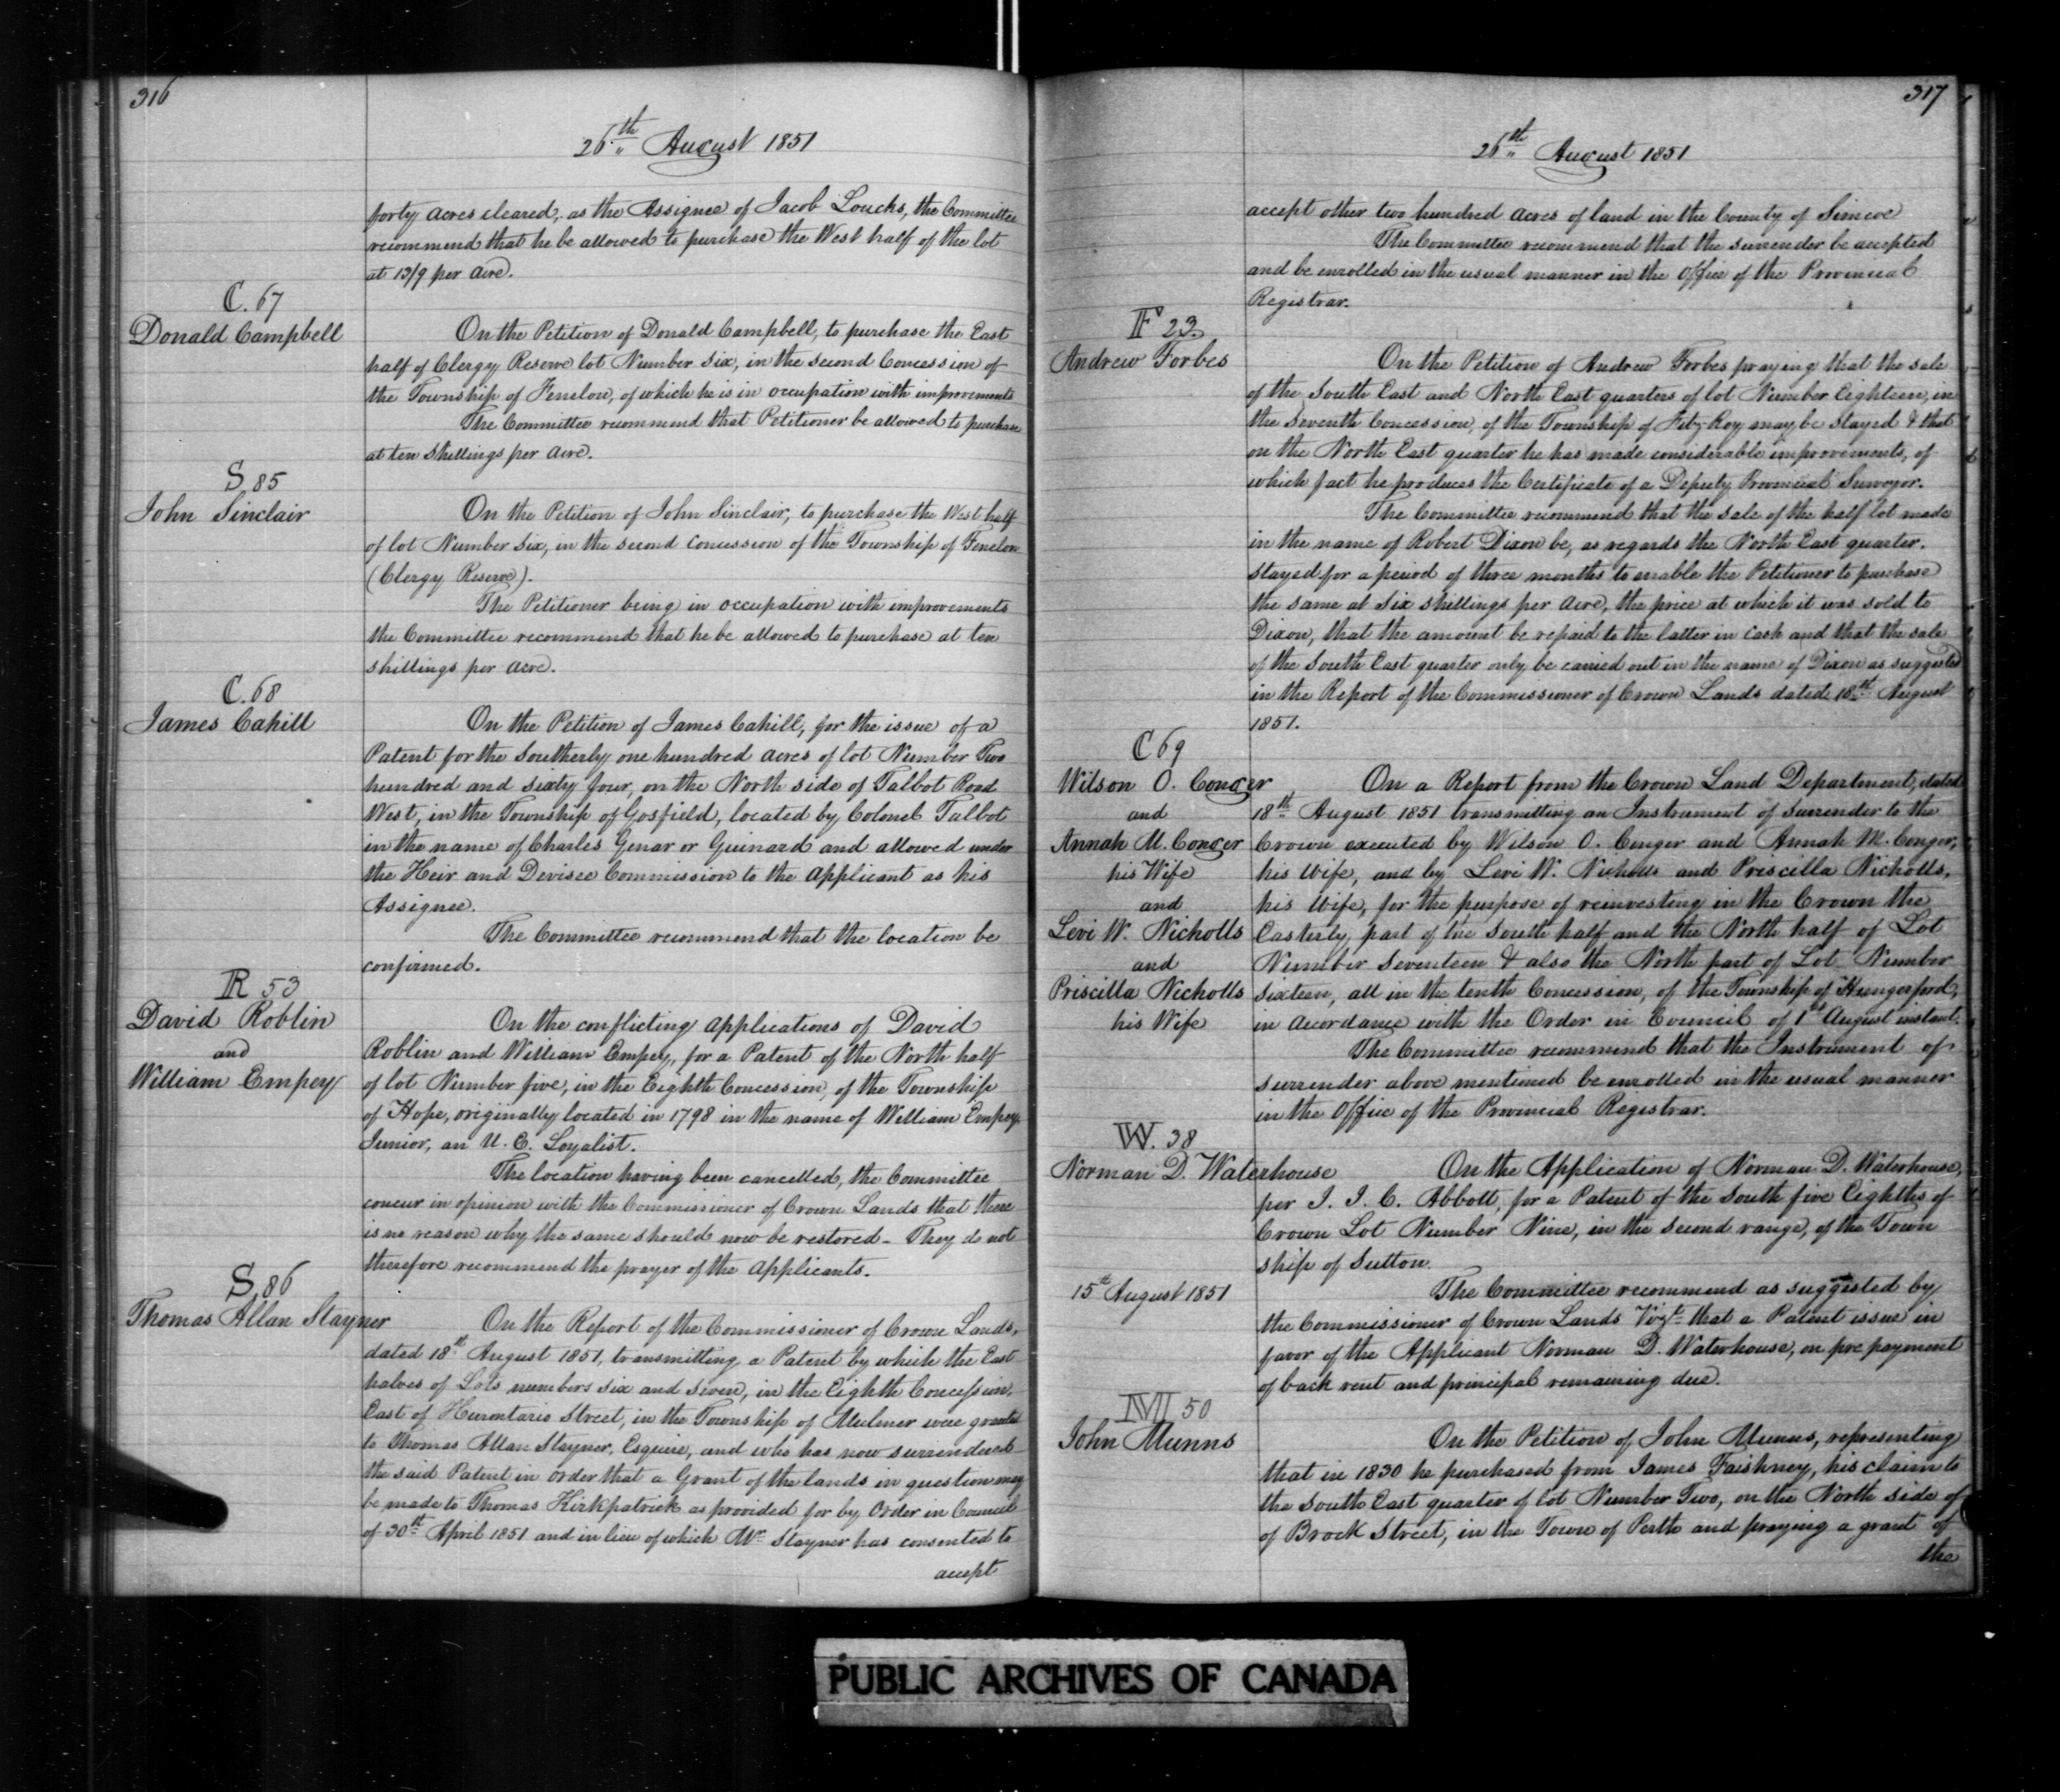 316
26th August 1851
forty acres cleared, as the Assignee of Jacob Loucks, the Committee
recommend that he be allowed to purchase the West half of the lot
at 13/9 per acre.
C. 67
Donald Campbell
On the Petition of Donald Campbell, to purchase the East
half of Clergy Reserve lot Number six, in the second Concession of
the Township of Fenelon, of which he is in occupation with improvements
The Committee recommend that Petitioner be allowed to purchase
at ten shillings per acre.
S 85
John Sinclair
On the Petition of John Sinclair, to purchase the West half
of lot Number six, in the second concession of the Township of Fenelon
(Clergy Reserve).
The Petitioner being in occupation with improvements
the Committee recommend that he be allowed to purchase at ten
shillings per acre.
C. 68
James Cahill
On the Petition of James Cahill, for the issue of a
Patent for the Southerly one hundred acres of lot Number Two
hundred and sixty four, on the North side of Talbot Road
West, in the Township of Gosfield, located by Colonel Talbot
in the name of Charles Genar or Guinard and allowed under
the Heir and Devisee Commission to the applicant as his
Assignee.
The Committee recommend that the location be
confirmed.
R 53
David Roblin
and
William Empey
On the conflicting applications of David
Roblin and William Empey, for a Patent of the North half
of lot Number five, in the Eighth Concession, of the Township
of Hope, originally located in 1798 in the name of William Empey
Junior, an U. E. Loyalist.
The location having been cancelled, the Committee
concur in opinion with the Commissioner of Crown Lands that there
is no reason why the same should now be restored - They do not
therefore recommend the prayer of the applicants.
S 86
Thomas Allan Stayner
On the Report of the Commissioner of Crown Lands,
dated 18th August 1851, transmitting a Patent by which the East
halves of Lots numbers six and seven, in the Eighth Concession,
East of Hurontario Street, in the Township of Mulmer were granted
to Thomas Allan Stayner, Esquire, and who has now surrendered
the said Patent in order that a Grant of the lands in question may
be made to Thomas Kirkpatrick as provided for by Order in Council
of 30th April 1851 and in lieu of which Mr Stayner has consented to
accept
317
26th August 1851
accept other two hundred acres of land in the County of Simcoe
The Committee recommend that the surrender be accepted
and be enrolled in the usual manner in the Office of the Provincial
Registrar.
F 23.
Andrew Forbes
On the Petition of Andrew Forbes praying that the sale
of the South East and North East quarters of lot Number Eighteen, in
the Seventh Concession, of the Township of Fitz-Roy may be stayed & that
on the North East quarter he has made considerable improvements, of
which fact he produces the Certificate of a Deputy Provincial Surveyor.
The Committee recommend that the sale of the half lot made
in the name of Robert Dixon be, as regards the North East quarter.
stayed for a period of three months to enable the Petitioner to purchase
the same at six shillings per acre, the price at which it was sold to
Dixon, that the amount be repaid to the latter in cash and that the sale
of the South East quarter only be carried out in the name of Dixon as suggested
in the Report of the Commissioner of Crown Lands dated 18th August
1851.
C 69
Wilson O. Conger
and
Annah M. Conger
his Wife
and
Levi W. Nicholls
and
Priscilla Nicholls
his Wife
On a Report from the Crown Land Department, dated
18th August 1851 transmitting an Instrument of Surrender to the
Crown executed by Wilson O. Conger and Annah M. Conger,
his Wife, and by Levi W. Nicholls and Priscilla Nicholls,
his Wife, for the purpose of reinvesting in the Crown the
Easterly part of the South half and the North half of Lot
Number Seventeen & also the North part of Lot Number
sixteen, all in the tenth Concession, of the Township of Hungerford,
in accordance with the Order in Council of 1st August instant.
The Committee recommend that the Instrument of
surrender above mentioned be enrolled in the usual manner
in the Office of the Provincial Registrar.
W. 38
Norman D. Waterhouse
On the Application of Norman D. Waterhouse,
per J. J. C. Abbott, for a Patent of the South five Eighths of
Crown Lot Number Nine, in the Second range, of the Town
ship of Sutton.
15th August 1851
The Committee recommend as suggested by
the Commissioner of Crown Lands Vizt that a Patent issue in
favor of the Applicant Norman D. Waterhouse, on pre payment
of back rent and principal remaining due.
M 50
John Munns
On the Petition of John Munns, representing
that in 1830 he purchased from James Faishney, his claim to
the South East quarter of lot Number Two, on the North side of
of Brock Street, in the Town of Perth and praying a grant of
the
PUBLIC ARCHIVES OF CANADA